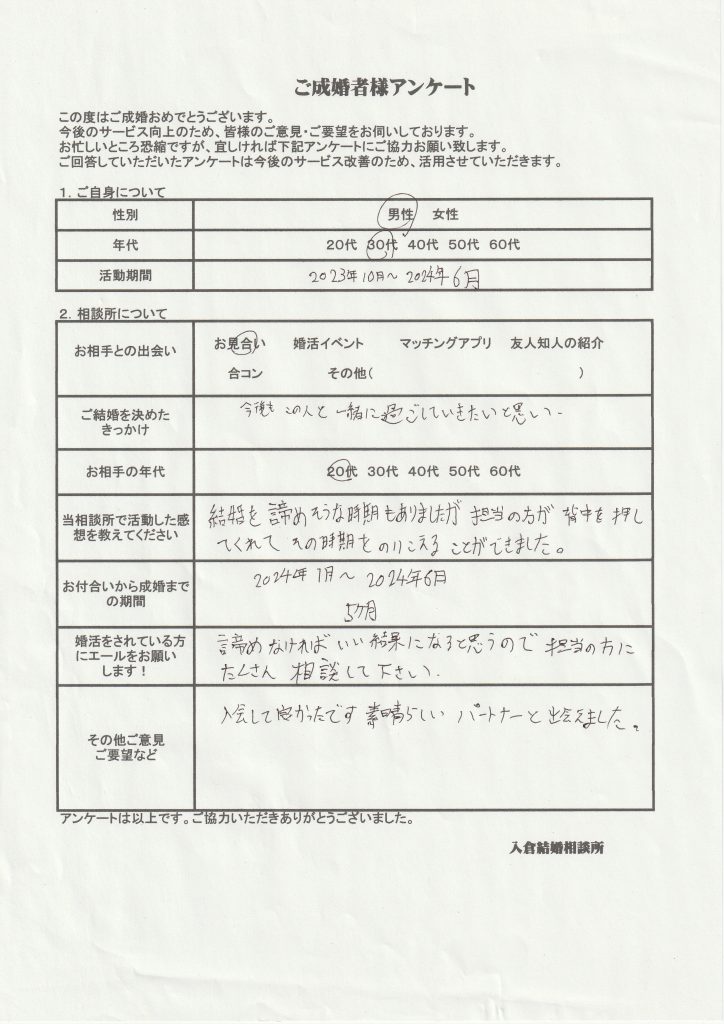 ご成婚者様アンケート
この度はご成婚おめでとうございます。
今後のサービス向上のため、皆様のご意見・ご要望をお伺いしております。
お忙しいところ恐縮ですが、宜しければ下記アンケートにご協力お願い致します。
ご回答していただいたアンケートは今後のサービス改善のため、活用させていただきます。
1. ご自身について
性別 男性 女性
年代 20代 30代 40代 50代 60代
活動期間 2023年10月〜 2024年6月
2. 相談所について
お相手との出会い お見合い 婚活イベント マッチングアプリ 友人知人の紹介
合コン その他( )
ご結婚を決めた
きっかけ
今後も この人と 一緒に過ごしていきたいと思い.
お相手の年代 20代 30代 40代 50代 60代
当相談所で活動した感
想を教えてください
結婚を諦めそうな時期もありましたが 担当の方が 背中を押し
てくれて その時期をのりこえる ことができました。
お付合いから成婚まで
の期間
2024年1月〜 2024年6月
5ヶ月
婚活をされている方
にエールをお願い
します!
諦めなければ いい結果になると思うので 担当の方に
たくさん 相談して下さい.
その他ご意見
ご要望など
入会して良かったです 素晴らしい パートナーと出会えました。
アンケートは以上です。ご協力いただきありがとうございました。
入倉結婚相談所